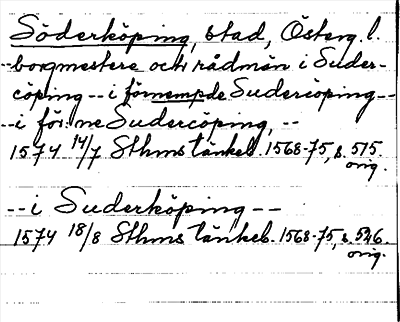 Söderköping, stad, Österg. l.
-- borgmestere och rådmän i Suder-
cöping -- i förnempde Sudercöping --
-- i för:ne Sudercöping, --
1574 14/7 Sthms tänkeb. 1568-75, s. 515.
orig.
-- i Suderköping --
1574 18/8 Sthms tänkeb. 1568-75, s. 526.
orig.